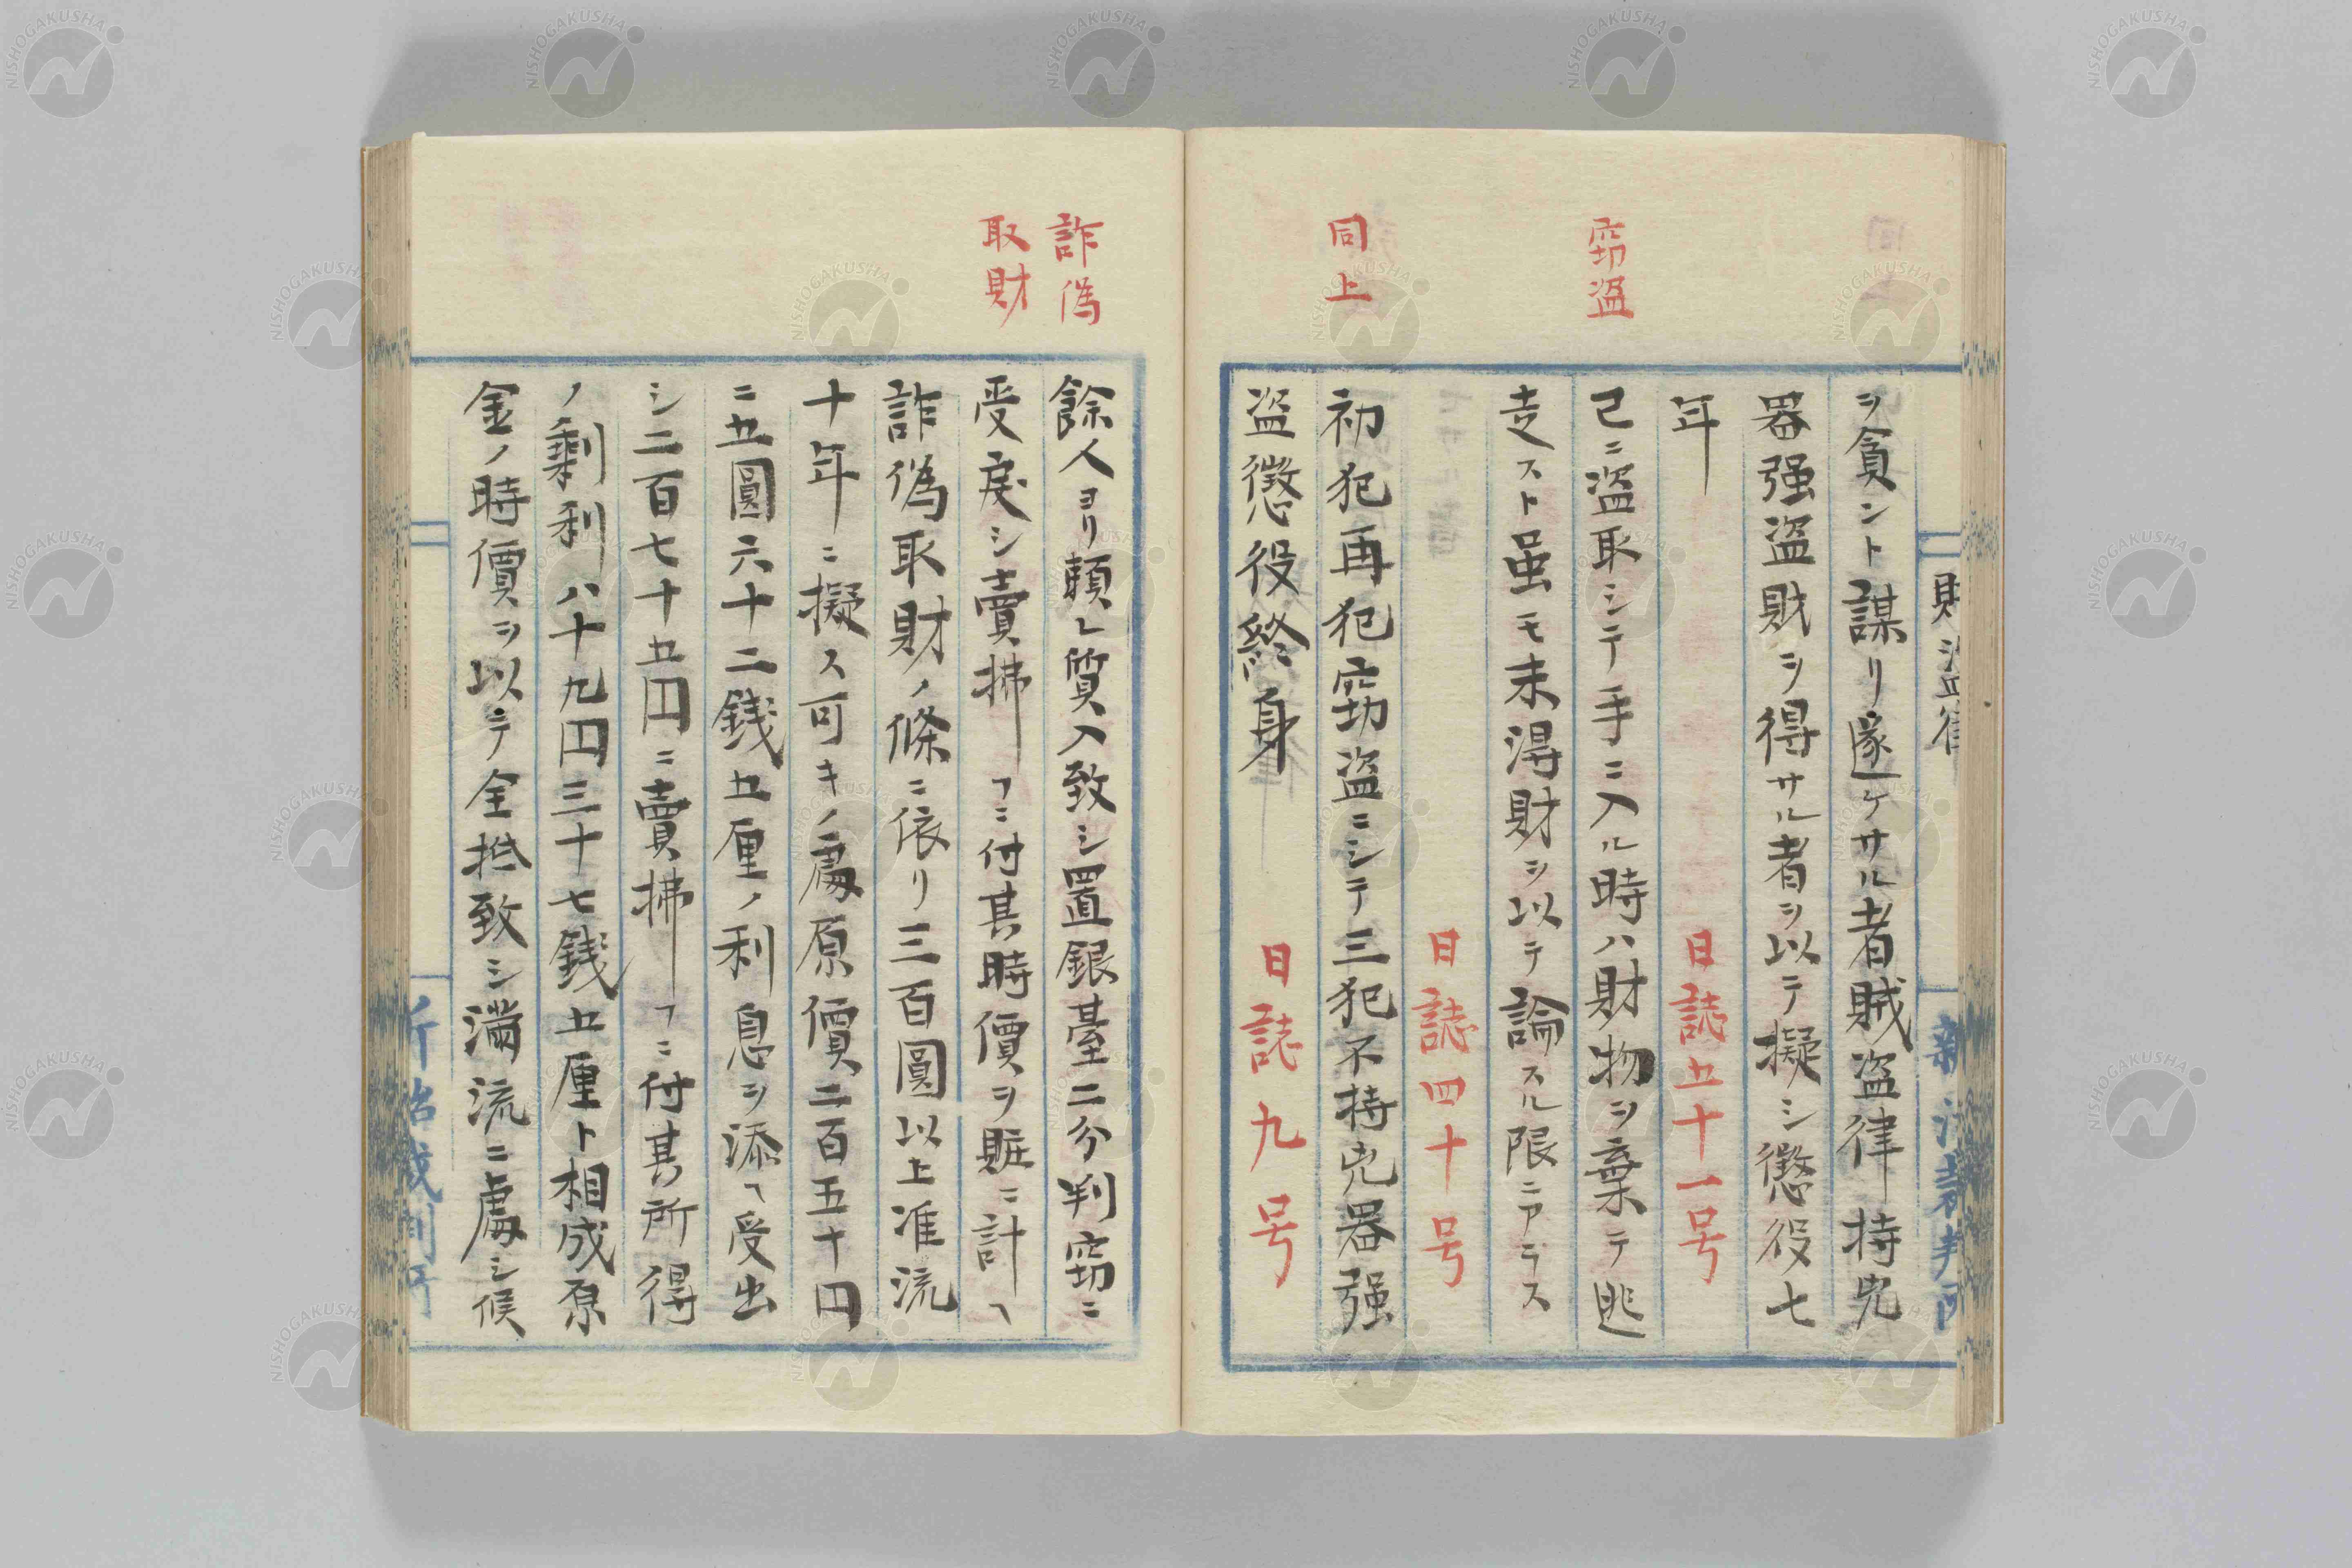 財盗律
ヲ貪ント謀リ遂ケサル者賊盗律持兇
器强盗財ヲ得サル者ヲ以テ擬シ懲役七
年
日誌五十一号
窃盗
己ニ盗取シテ手ニ入ル時ハ財物ヲ棄テ逃
走スト虽モ未得財ヲ以テ論スル限ニアラス
日誌四十号
同上
初犯再犯窃盗ニシテ三犯不持兇器强
盗懲役終身
日誌九号
詐偽
取財
餘人ヨリ頼レ質入致シ置銀臺二分判窃ニ
受戻シ賣拂フニ付其時價ヲ賍ニ計ヘ
詐偽取財ノ條ニ依リ三百圓以上准流
十年ニ擬ス可キノ處原價二百五十円
ニ五圓六十二銭五厘ノ利息ヲ添ヘ受出
シ二百七十五円ニ賣拂フニ付其所得
ノ剰利八十九円三十七銭五厘ト相成原
金ノ時價ヲ以テ全科致シ満流ニ處シ候
NISHOGAKUSHA